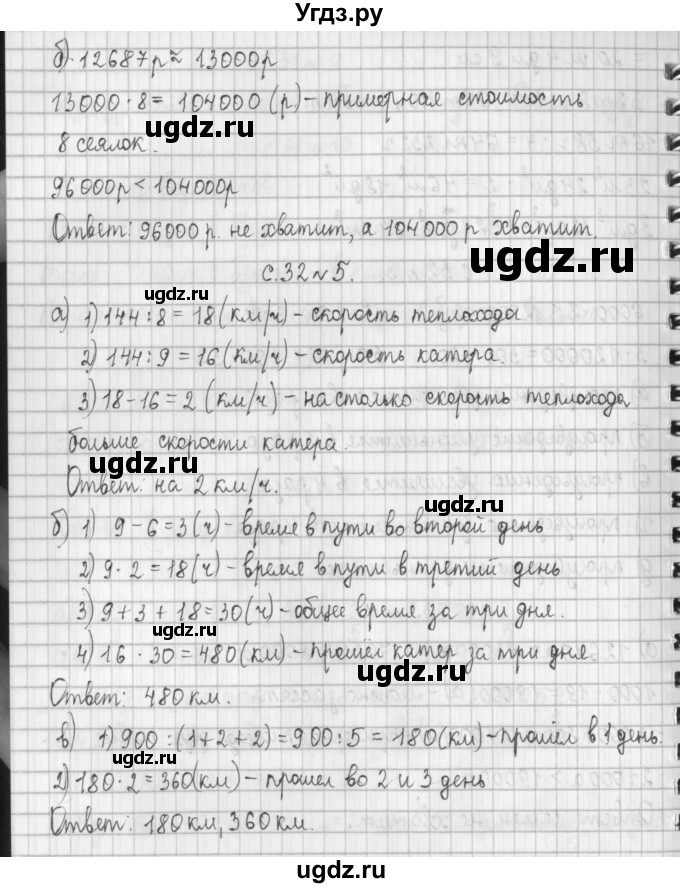 Угдз.ру
б) 12687р ≈ 13000р
13000 · 8 = 104000 (р) – примерная стоимость
ugdz.ru
8 сеялок.
ugdz.ru
96000р < 104000р
Ответ: 96000 р. не хватит, а 104000 р хватит.
ugdz.ru
с.32 №5.
ugdz.ru
а) 1) 144 : 8 = 18 (км/ч) – скорость теплохода
2) 144 : 9 = 16 (км/ч) – скорость катера
ugdz.ru
3) 18 – 16 = 2 (км/ч) – на столько скорость теплохода
больше скорости катера.
ugdz.ru
Ответ: на 2 км/ч.
ugdz.ru
б) 1) 9 – 6 = 3 (ч) – время в пути во второй день
2) 9 · 2 = 18 (ч) – время в пути в третий день
ugdz.ru
3) 9 + 3 + 18 = 30 (ч) – общее время за три дня.
4) 16 · 30 = 480 (км) – прошёл катер за три дня.
ugdz.ru
Ответ: 480 км.
ugdz.ru
в) 1) 900 : (1 + 2 + 2) = 900 : 5 = 180 (км) – прошёл в 1 день.
2) 180 · 2 = 360 (км) – прошел во 2 и 3 день
Ответ: 180 км, 360 км.
ugdz.ru
ugdz.ru